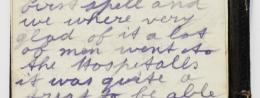 spell and
we where very
glad of it a lot
of men went to
the Hospitalls
it was quite a
treat to be able